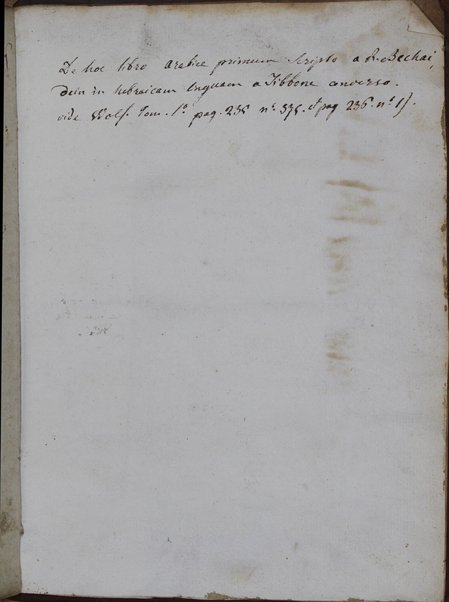 De hoc libro arabice primum scripto a R. Bechai,
dein in hebraicam linguam a Tibbone converso.
vide Wolf. Tom. 1.º pag. 235 nº. 375. et pag 236. nº